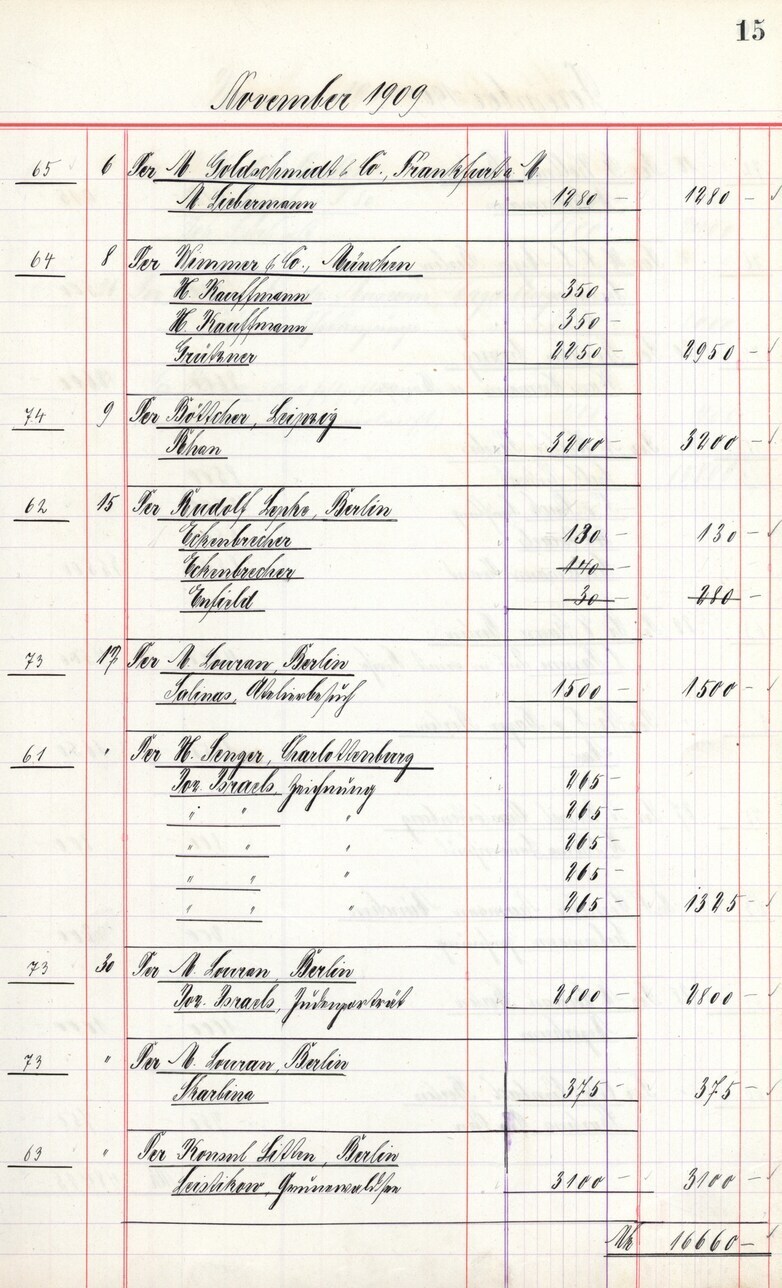 15
November 1909
65 6 Per M. Goldschmidt & Co., Frankfurt a M.
M. Liebermann 1280 – 1280 – ✓
64 8 Per Wimmer & Co., München
H. Kauffmann 350 –
H. Kauffmann 350 –
Grützner 2250 – 2950 – ✓
74 9 Per Böttcher, Leipzig
3200 – 3200 – ✓
62 15 Per Rudolf Lepke, Berlin
Eckenbrecher 130 – 130 – ✓
Eckenbrecher 140 –
Enfield 30 – 280 –
73 17 Per M. Louran, Berlin
Salinas, Atelierbesuch 1500 – 1500 – ✓
61 " Per H. Senger, Charlottenburg
Joz. Israels, Zeichnung 265 –
" " " 265 –
" " " 265 –
" " " 265 –
" " " 265 – 1325 – ✓
73 30 Per M. Louran, Berlin
Joz. Israels, Judenporträt 2800 – 2800 – ✓
73 " Per M. Louran, Berlin
Skarbina 375 – 375 – ✓
63 " Per Konsul Litten, Berlin
Leistikow, Grunewaldsee 3100 – 3100 – ✓
Mk 16660 – ✓